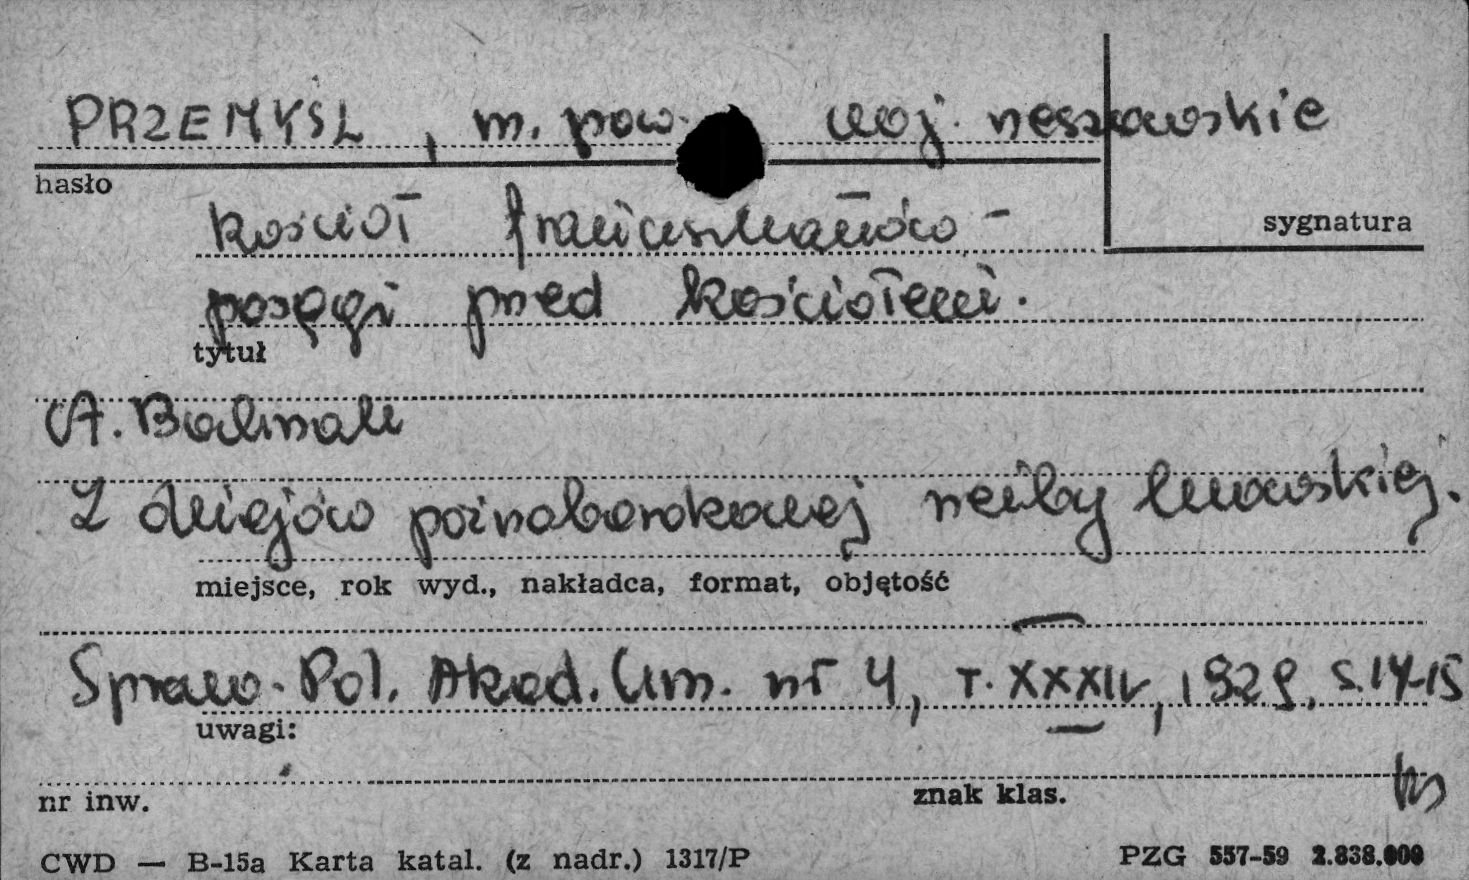 PRZEMYŚL, m. pow. woj. rzeszowskie
hasło
kościół franciszkanów -
sygnatura
posągi przed kościołem.
tytuł
A. Bochnak
Z dziejów późnobarokowej rzeźby lwowskiej.
miejsce, rok wyd., nakładca, format, objętość
Spraw. Pol. Akad. Um. nr 4, T. XXXIV, 1929, s. 14-15
uwagi:
nr inw. znak klas.
CWD — B-15a Karta katal. (z nadr.) 1317/P PZG 557-59 2.838.000